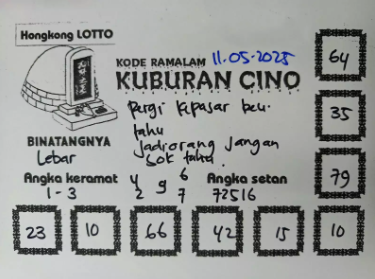 Hongkong LOTTO
KODE RAMALAM 11.05.2025
KUBURAN CINO
pergi kepasar beli
tahu
Jadi orang jangan
sok tahu.
BINATANGNYA
Lebar
Angka keramat
1 - 3
4 9 6
2 7
Angka setan
72516
64
35
79
23 10 66 42 15 10